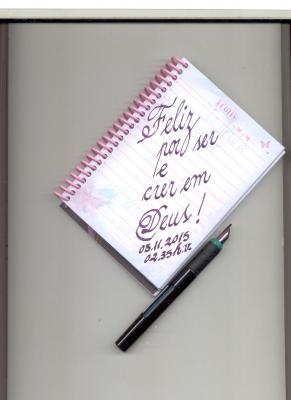 Feliz
por ser
e
crer em
Deus!
05.11.2015
02.35h.v